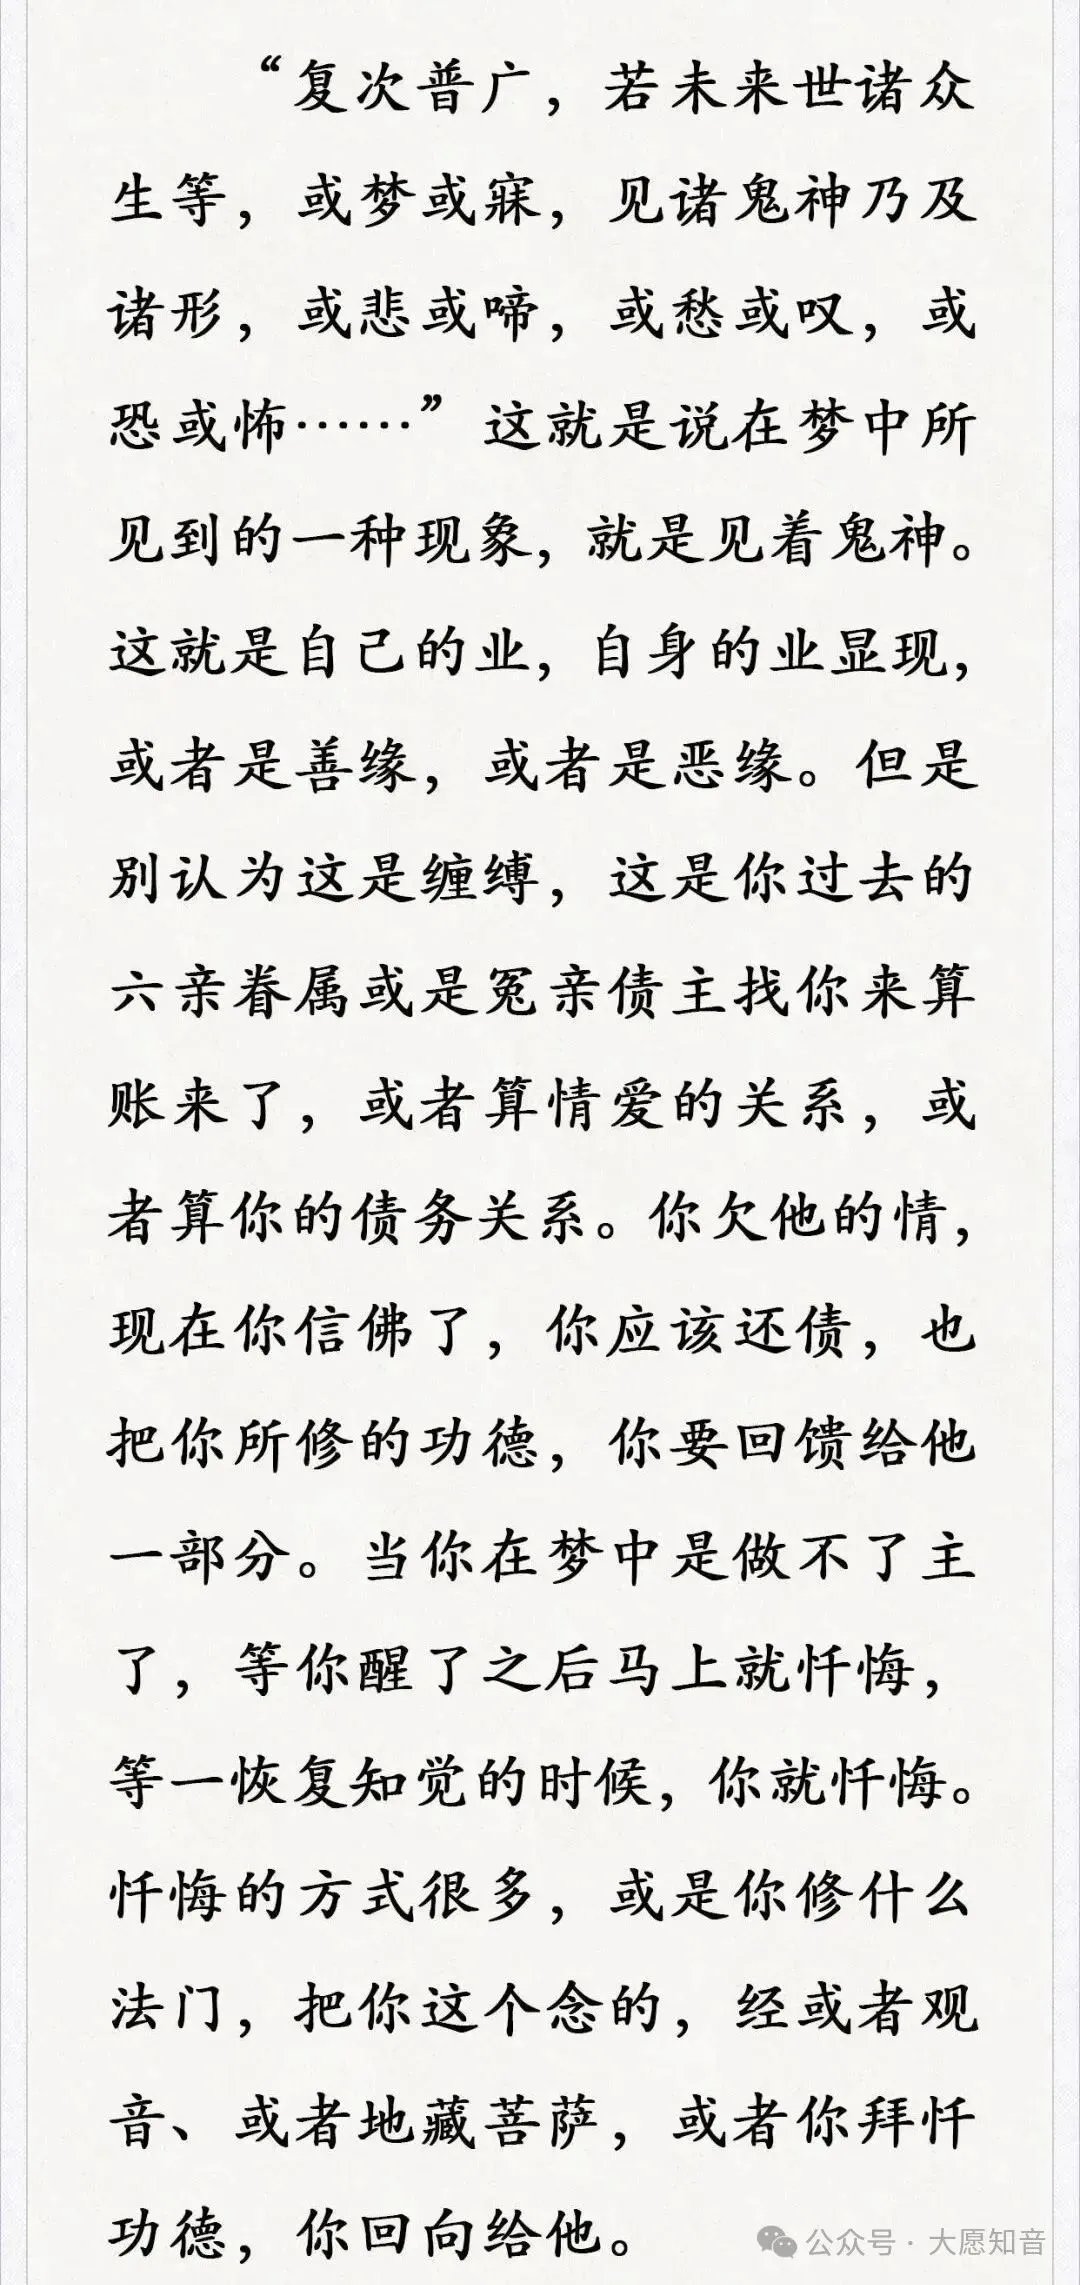 “复次普广，若未来世诸众
生等，或梦或寐，见诸鬼神乃及
诸形，或悲或啼，或愁或叹，或
恐或怖……”这就是说在梦中所
见到的一种现象，就是见着鬼神。
这就是自己的业，自身的业显现，
或者是善缘，或者是恶缘。但是
别认为这是缠缚，这是你过去的
六亲眷属或是冤亲债主找你来算
账来了，或者算情爱的关系，或
者算你的债务关系。你欠他的情，
现在你信佛了，你应该还债，也
把你所修的功德，你要回馈给他
一部分。当你在梦中是做不了主
了，等你醒了之后马上就忏悔，
等一恢复知觉的时候，你就忏悔。
忏悔的方式很多，或是你修什么
法门，把你这个念的，经或者观
音、或者地藏菩萨，或者你拜忏
功德，你回向给他。
公众号·大愿知音